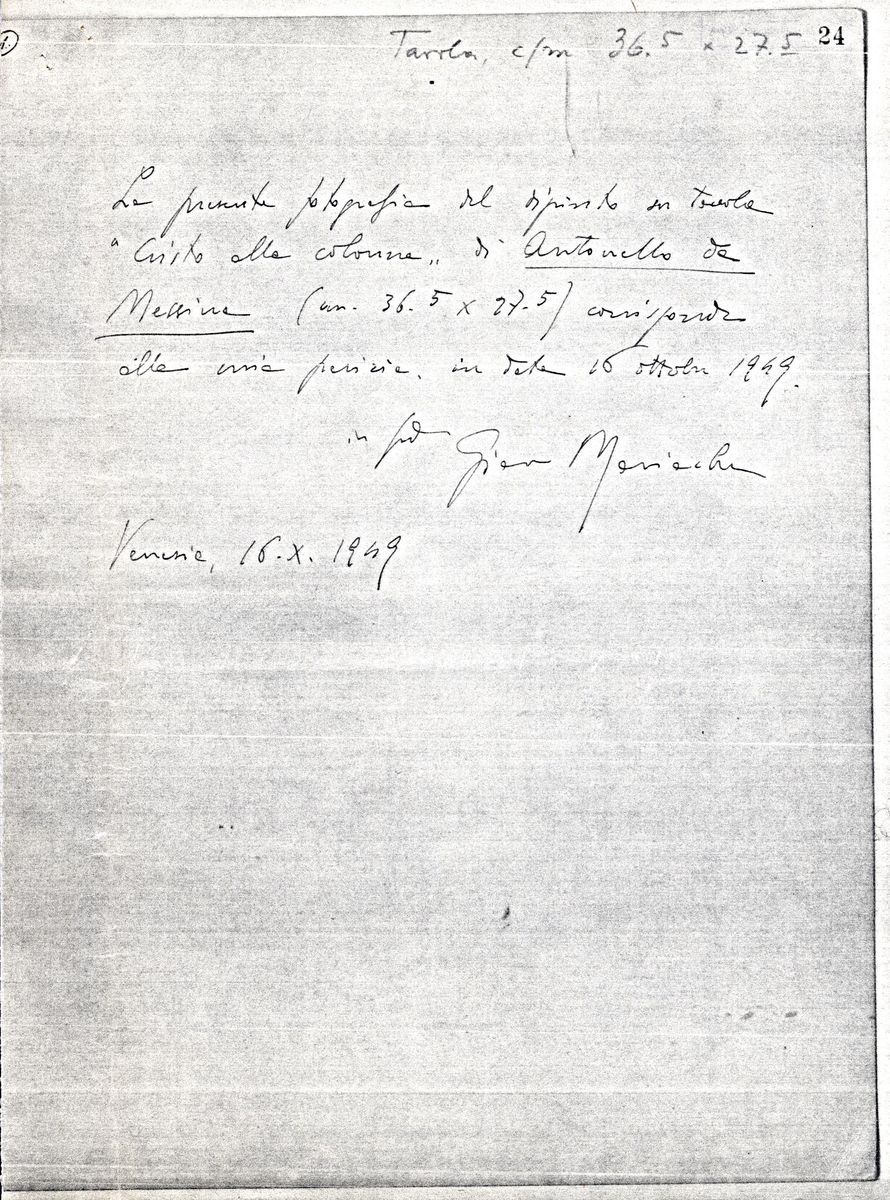 1.
Tavola, c/m 36.5 x 27.5
24
La presente fotografia del dipinto su tavola
"Cristo alla colonna„ di Antonello da
Messina (cm. 36.5 x 27.5) corrisponde
alla mia perizia. in data 16 ottobre 1949.
in fede
Venezia, 16.X.1949